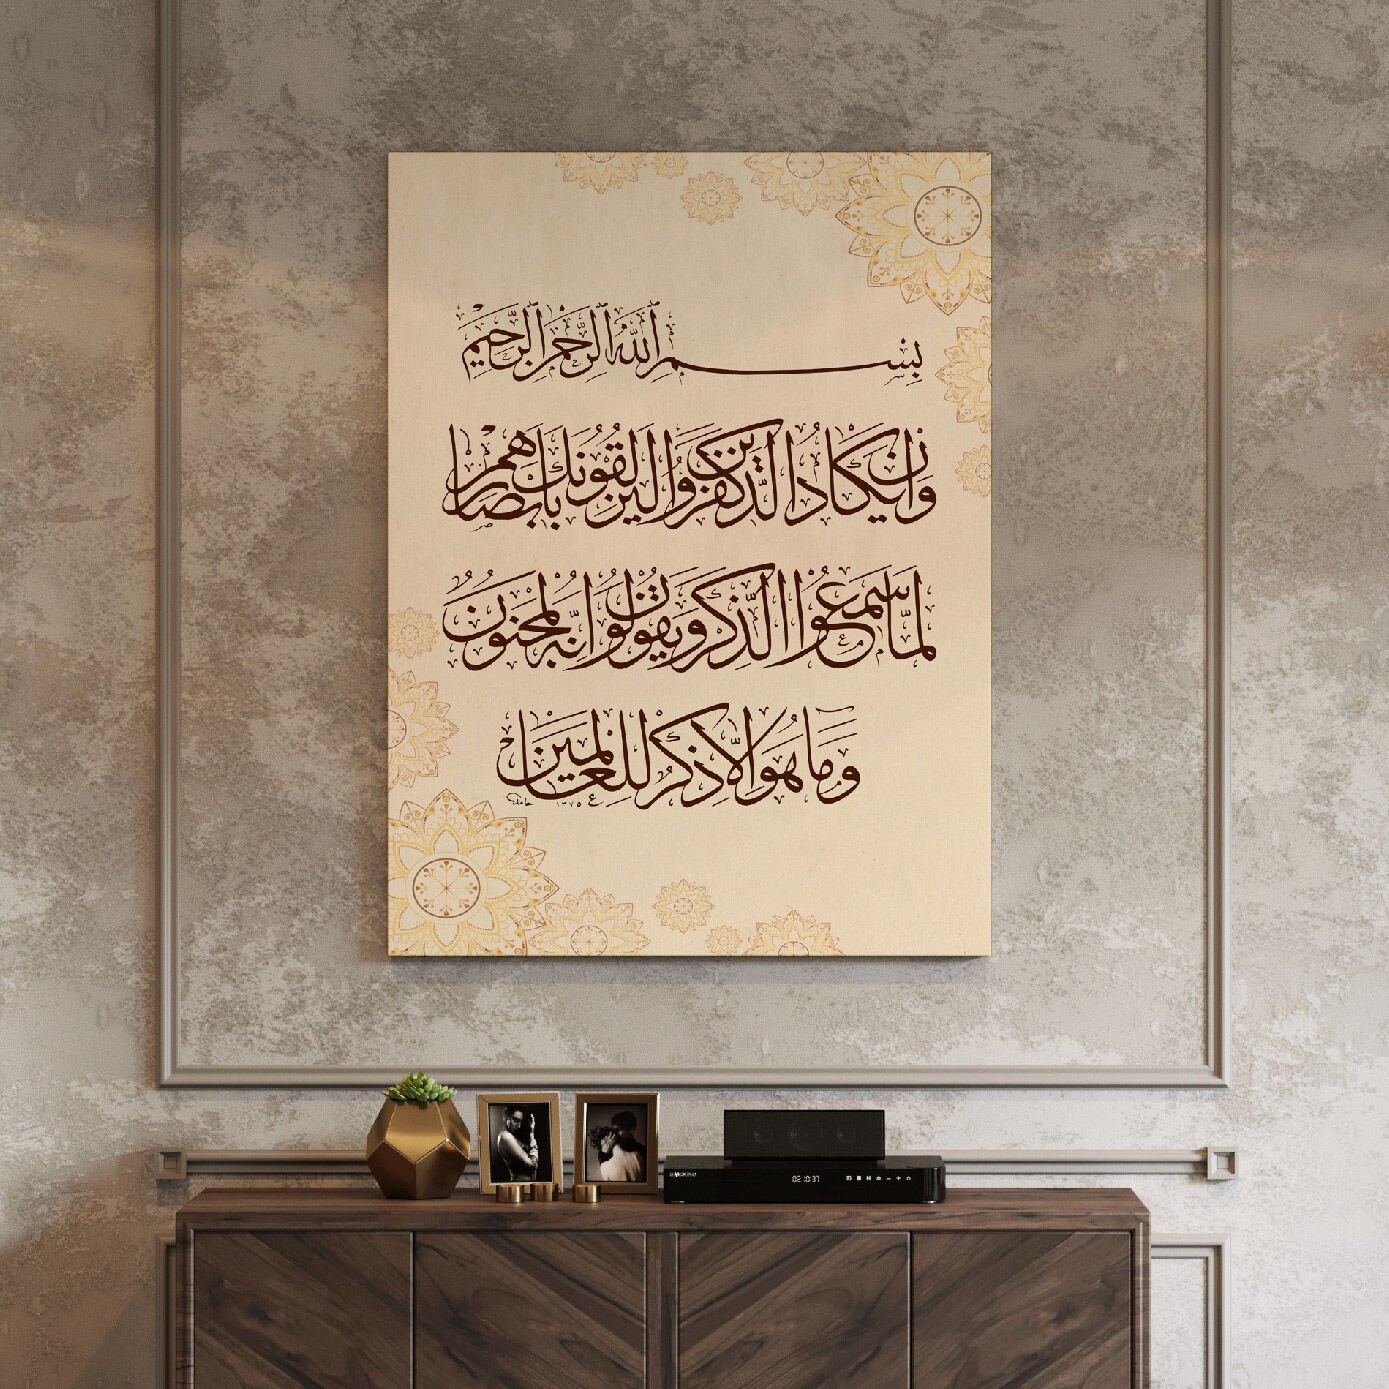 بِسْمِ ٱللَّهِ ٱلرَّحْمَٰنِ ٱلرَّحِيمِ
وَإِنْ يَكَادُ الَّذِينَ كَفَرُوا لَيُزْلِقُونَكَ بِأَبْصَارِهِمْ
لَمَّا سَمِعُوا الذِّكْرَ وَيَقُولُونَ إِنَّهُ لَمَجْنُونٌ
وَمَا هُوَ إِلَّا ذِكْرٌ لِلْعَالَمِينَ
02:10:37